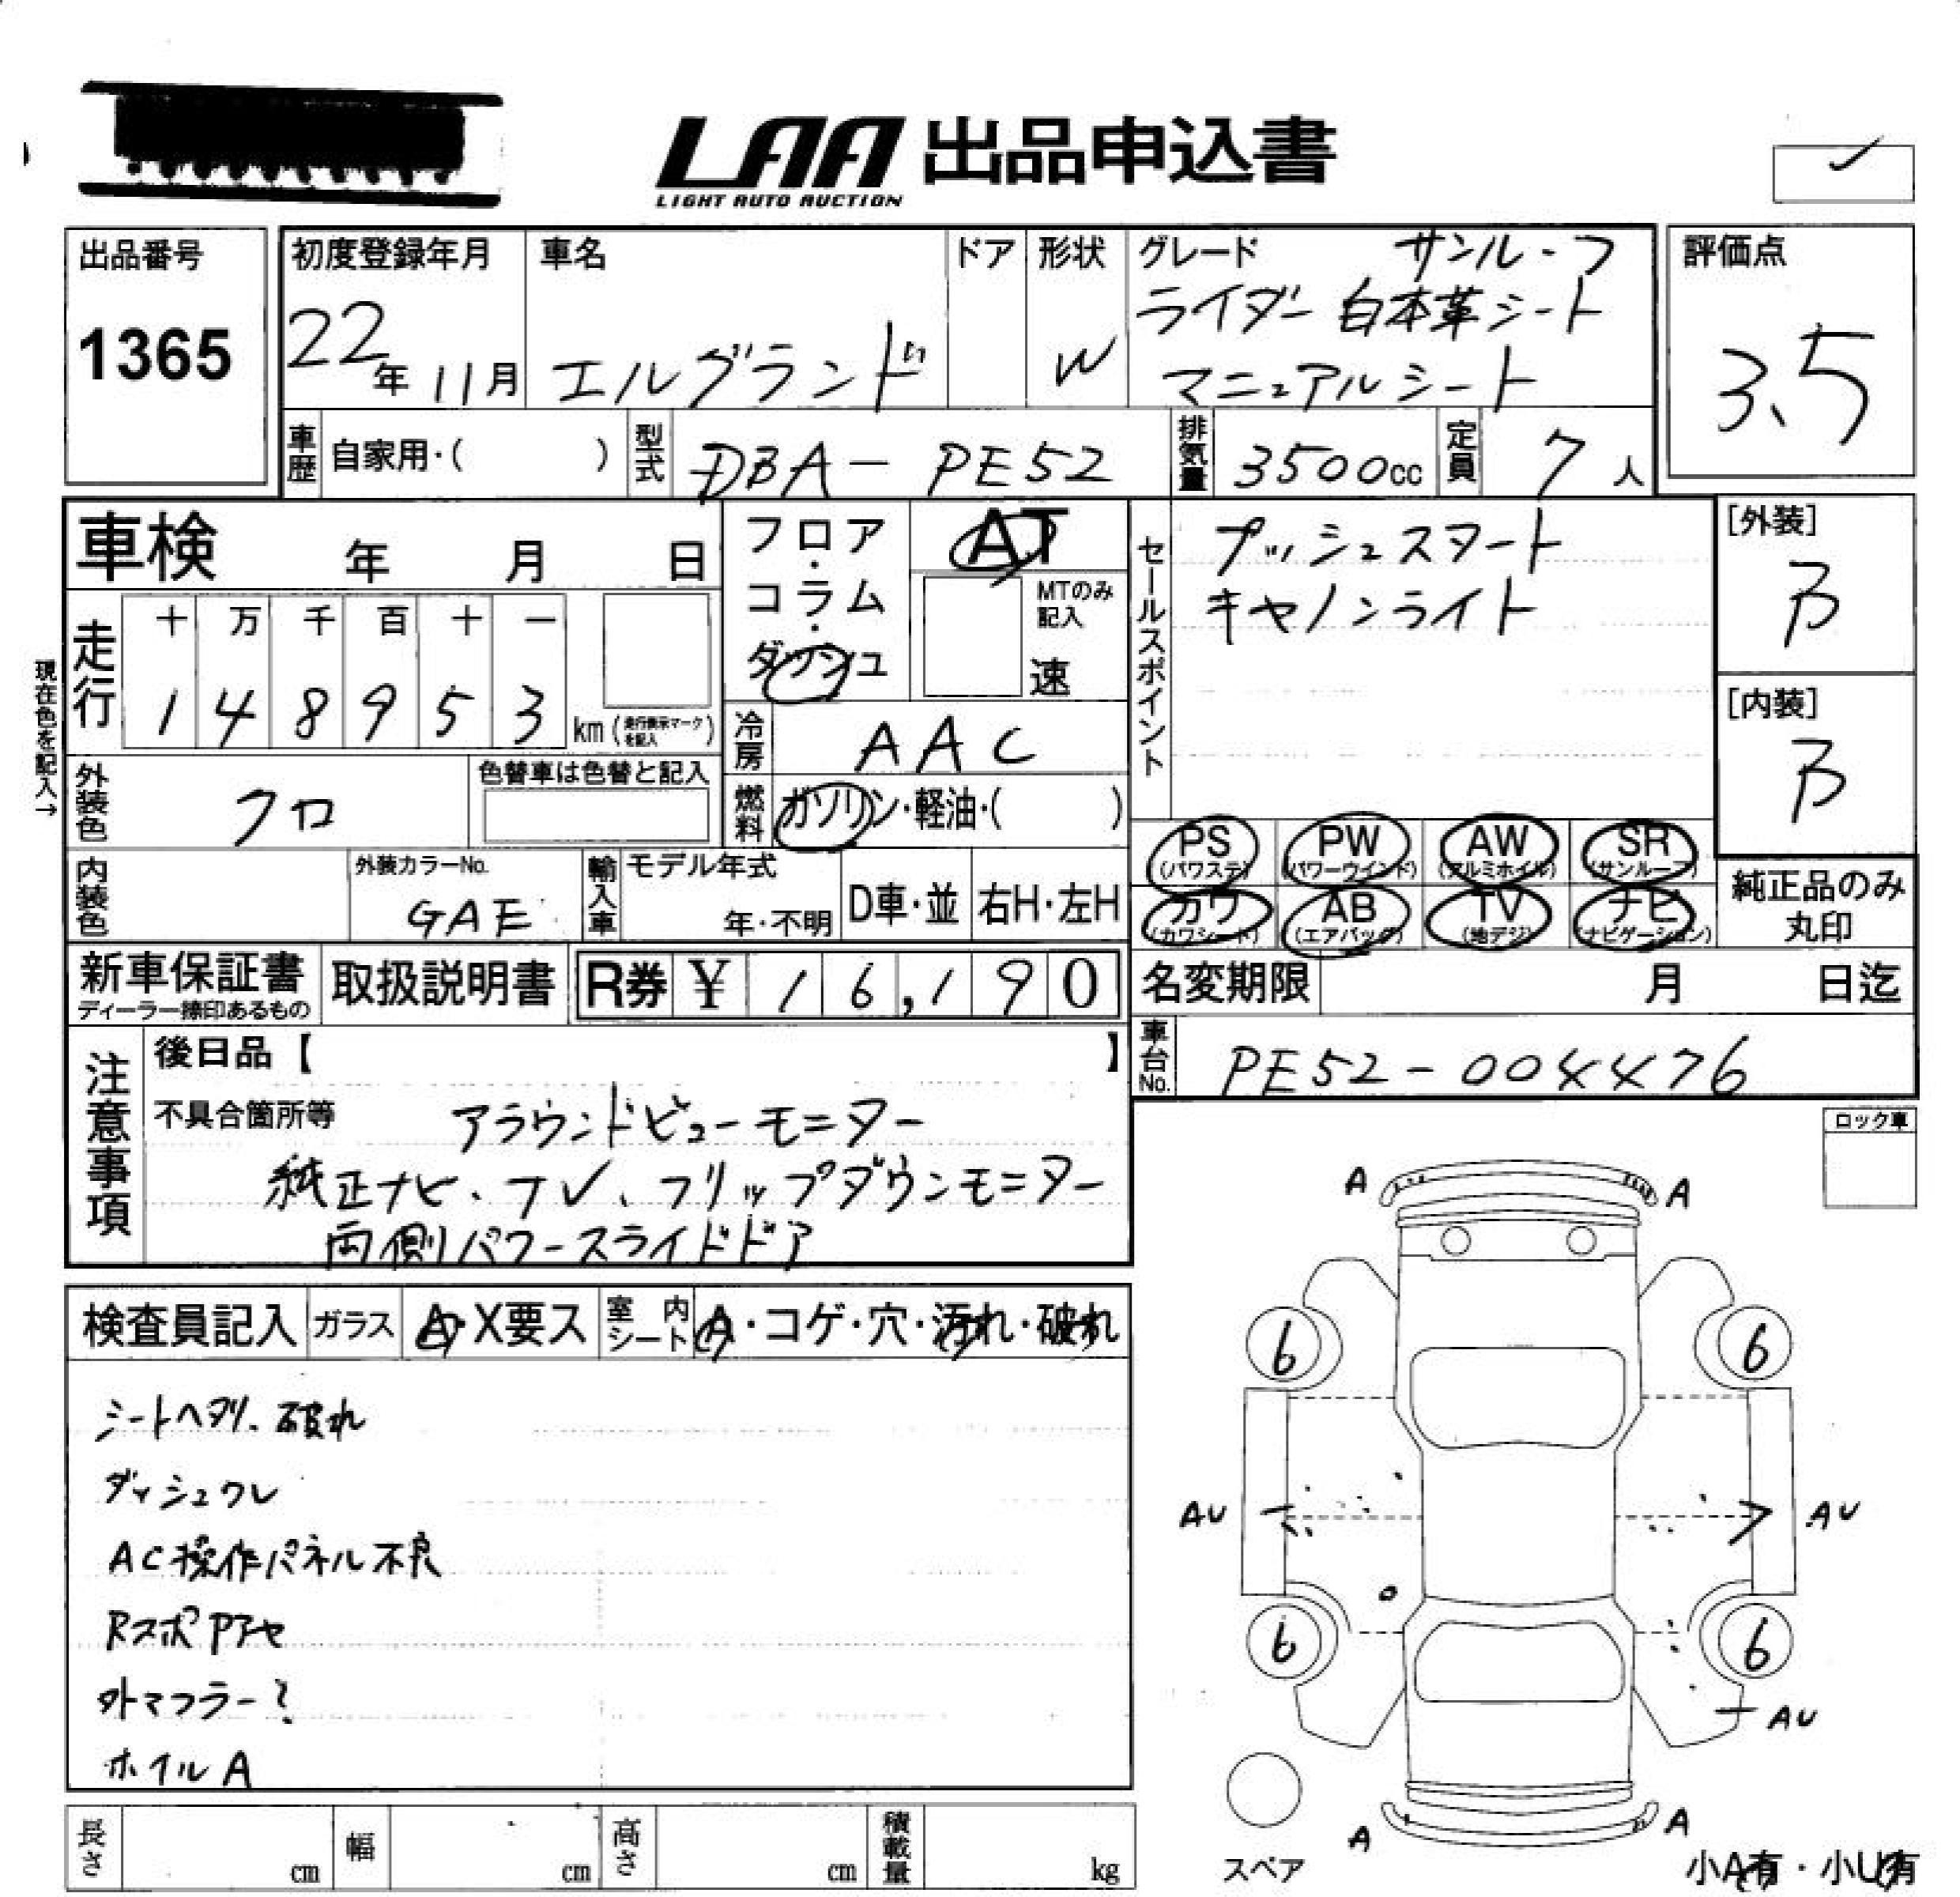 LAA 出品申込書
LIGHT AUTO AUCTION
出品番号
1365
初度登録年月
22年11月
車名
エルグランド
ドア
形状
W
グレード サンルーフ
ライダー 白本革シート
マニュアルシート
評価点
3.5
車歴 自家用・( )
型式 DBA-PE52
排気量 3500cc
定員 7人
車検 年 月 日
フロア・コラム・ダッシュ
AT
MTのみ記入
速
セールスポイント
プッシュスタート
キセノンライト
[外装]
B
[内装]
B
現在色を記入→
走行
十 万 千 百 十 一
1 4 8 9 5 3 km (走行表示マークを記入)
冷房 AAC
外装色 クロ
色替車は色替と記入
燃料 ガソリン・軽油・( )
PS (パワステ) PW (パワーウインド) AW (アルミホイル) SR (サンルーフ)
カワ (カワシート) AB (エアバッグ) TV (地デジ) ナビ (ナビゲーション)
純正品のみ丸印
内装色
外装カラーNo.
GAE
輸入車 モデル年式
年・不明
D車・並
右H・左H
新車保証書
ディーラー捺印あるもの
取扱説明書
R券 ¥ 16,190
名変期限 月 日迄
車台No. PE52-004476
注意事項
後日品【 】
不具合箇所等 アラウンドビューモニター
純正ナビ、TV、フリップダウンモニター
両側パワースライドドア
ロック車
検査員記入 ガラス A・X要ス 室内シート A・コゲ・穴・汚れ・破れ
シートヘタリ、破れ
ダッシュワレ
AC操作パネル不良
RスポPアセ
外マフラー?
ホイルA
A A
6 6
AU AU
6 6
AU
A A
スペア
小A有・小U有
長さ cm 幅 cm 高さ cm 積載量 kg